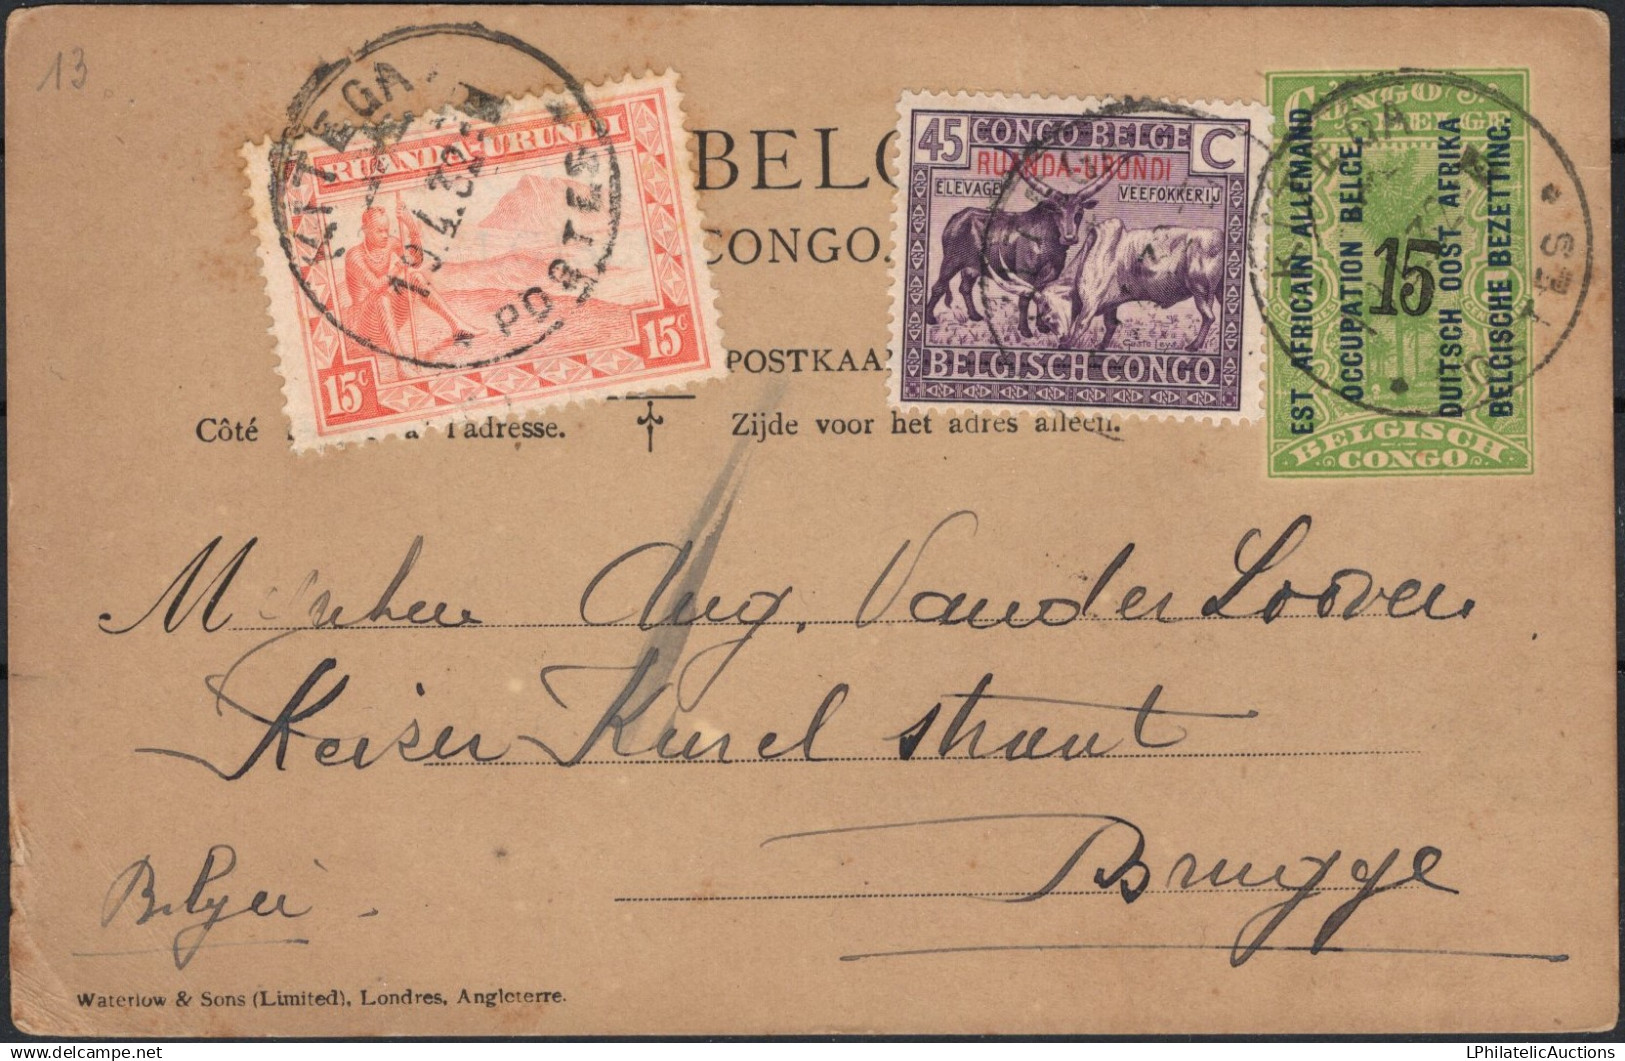 13
KITEGA
19.4.32
* POSTES *
RUANDA-URUNDI
15c 15c
BELG
CONGO.
POSTKAA
45 CONGO BELGE C
RUANDA-URUNDI
ELEVAGE VEEFOKKERIJ
BELGISCH-CONGO
CONGO
BELGE
EST AFRICAIN ALLEMAND
OCCUPATION BELGE.
15
DUITSCH OOST AFRIKA
BELGISCHE BEZETTING.
BELGISCH
CONGO
Côté l'adresse. Zijde voor het adres alleen.
Aug. Vander Looven
Keizer Karel straat
Brugge
België
Waterlow & Sons (Limited), Londres, Angleterre.
LPhilatelicAuctions